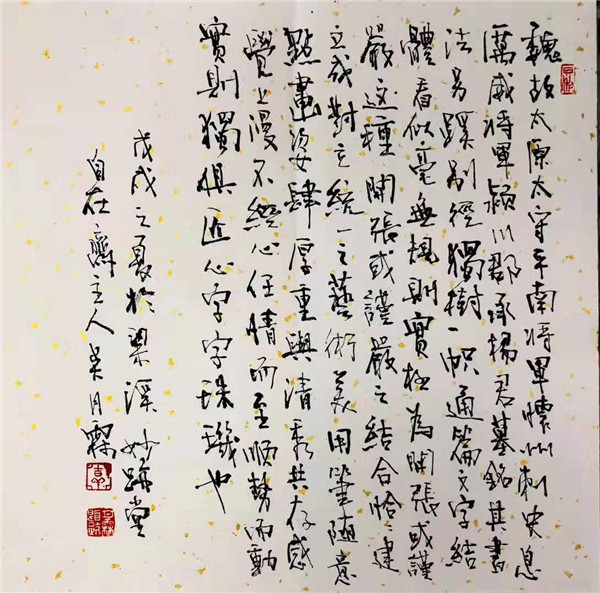 魏故太原太守平南将軍懷州刺史息
厲威将軍潁川郡承楊君墓銘其書
法另蹊別徑獨樹一幟通篇文字結
體看似毫無規則實極為開張或謹
嚴這種開張或謹嚴之結合恰建
立成對立統一之藝術美用筆隨意
點畫姿肆厚重與清秀共存感
覺上漫不經心任情而至順勢而動
實則獨俱匠心字字珠璣也
戊戌之夏於梁溪妙跡堂
自在齋主人吴月霖